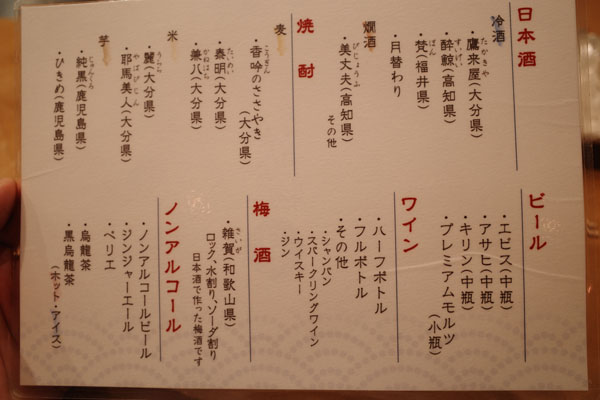 日本酒
冷酒
・鷹来屋(大分県)
たかきや
・酔鯨(高知県)
すいげい
・梵(福井県)
ぼん
・月替わり
燗酒
・美丈夫(高知県)
びじょうふ
その他
焼酎
麦
・香吟のささやき
こうぎん
(大分県)
・泰明(大分県)
たいめい
・兼八(大分県)
かねはち
米
・麗(大分県)
うらら
・耶馬美人(大分県)
やばびじん
芋
・純黒(鹿児島県)
じゅんくろ
・ひきめ(鹿児島県)
ビール
・エビス(中瓶)
・アサヒ(中瓶)
・キリン(中瓶)
・プレミアムモルツ
(小瓶)
ワイン
・ハーフボトル
・フルボトル
・その他
・シャンパン
・スパークリングワイン
・ウイスキー
・ジン
梅酒
・雑賀(和歌山県)
さいが
ロック、水割り、ソーダ割り
日本酒で作った梅酒です
ノンアルコール
・ノンアルコールビール
・ジンジャーエール
・ペリエ
・烏龍茶
・黒烏龍茶
(ホット・アイス)